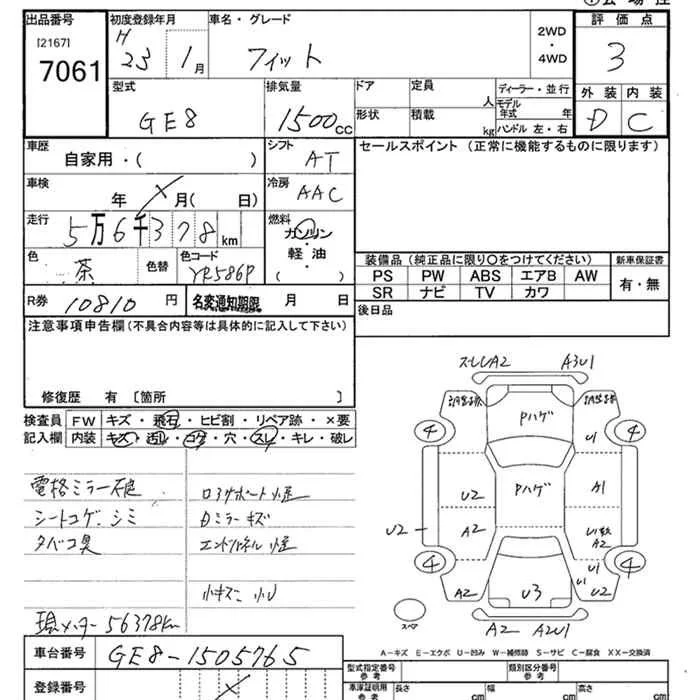 出品番号
[2167]
7061
初度登録年月
H 23 1月
車名・グレード
フィット
2WD
・
4WD
評価点
3
外装 内装
D C
型式
GE8
排気量
1500cc
ドア
形状
定員
人
積載
kg
ディーラー・並行
モデル
年式 年
ハンドル 左・右
車歴
自家用・( )
シフト
AT
セールスポイント (正常に機能するものに限ります)
車検
年 月( 日)
冷房
AAC
走行
5万6千378km
燃料
ガソリン
軽・油
( )
色
茶
色替
色コード
YR586P
装備品 (純正品に限り○をつけてください)
新車保証書
PS PW ABS エアB AW
SR ナビ TV カワ
有・無
R券
10810円
名変通知期限 月 日
後日品
注意事項申告欄 (不具合内容等は具体的に記入して下さい)
修復歴 有 〔箇所 〕
検査員
記入欄
FW キズ・飛石・ヒビ割・リペア跡・×要
内装 キズ・汚レ・コゲ・穴・スレ・キレ・破レ
電格ミラー不良
シートコゲ、シミ
タバコ臭
ロアサポート
ミラーキズ
小キズ
現メーター56378km
スレA2 A3U1
Pハゲ
4 4
U1
Pハゲ
U2 A1
U2 A2
A2
U1
4 4
U1
A2 U3 U2
スペア
A2 A2U1
A-キズ E-エクボ U-凹み W-補修跡 S-サビ C-腐食 XX-交換済
車台番号
GE8-1505765
登録番号
型式指定番号
参考
類別区分番号
参考
車庫証明用
参考
長さ
cm
幅
cm
高さ
cm